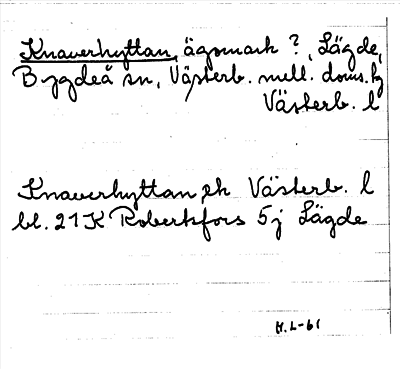 Knaverhyttan, ägomark ?, Lägde,
Bygdeå sn, Västerb. mell. doms.hg
Västerb. l
Knaverhyttan, ek Västerb. l
bl. 21K Robertsfors 5j Lägde
H.L-61